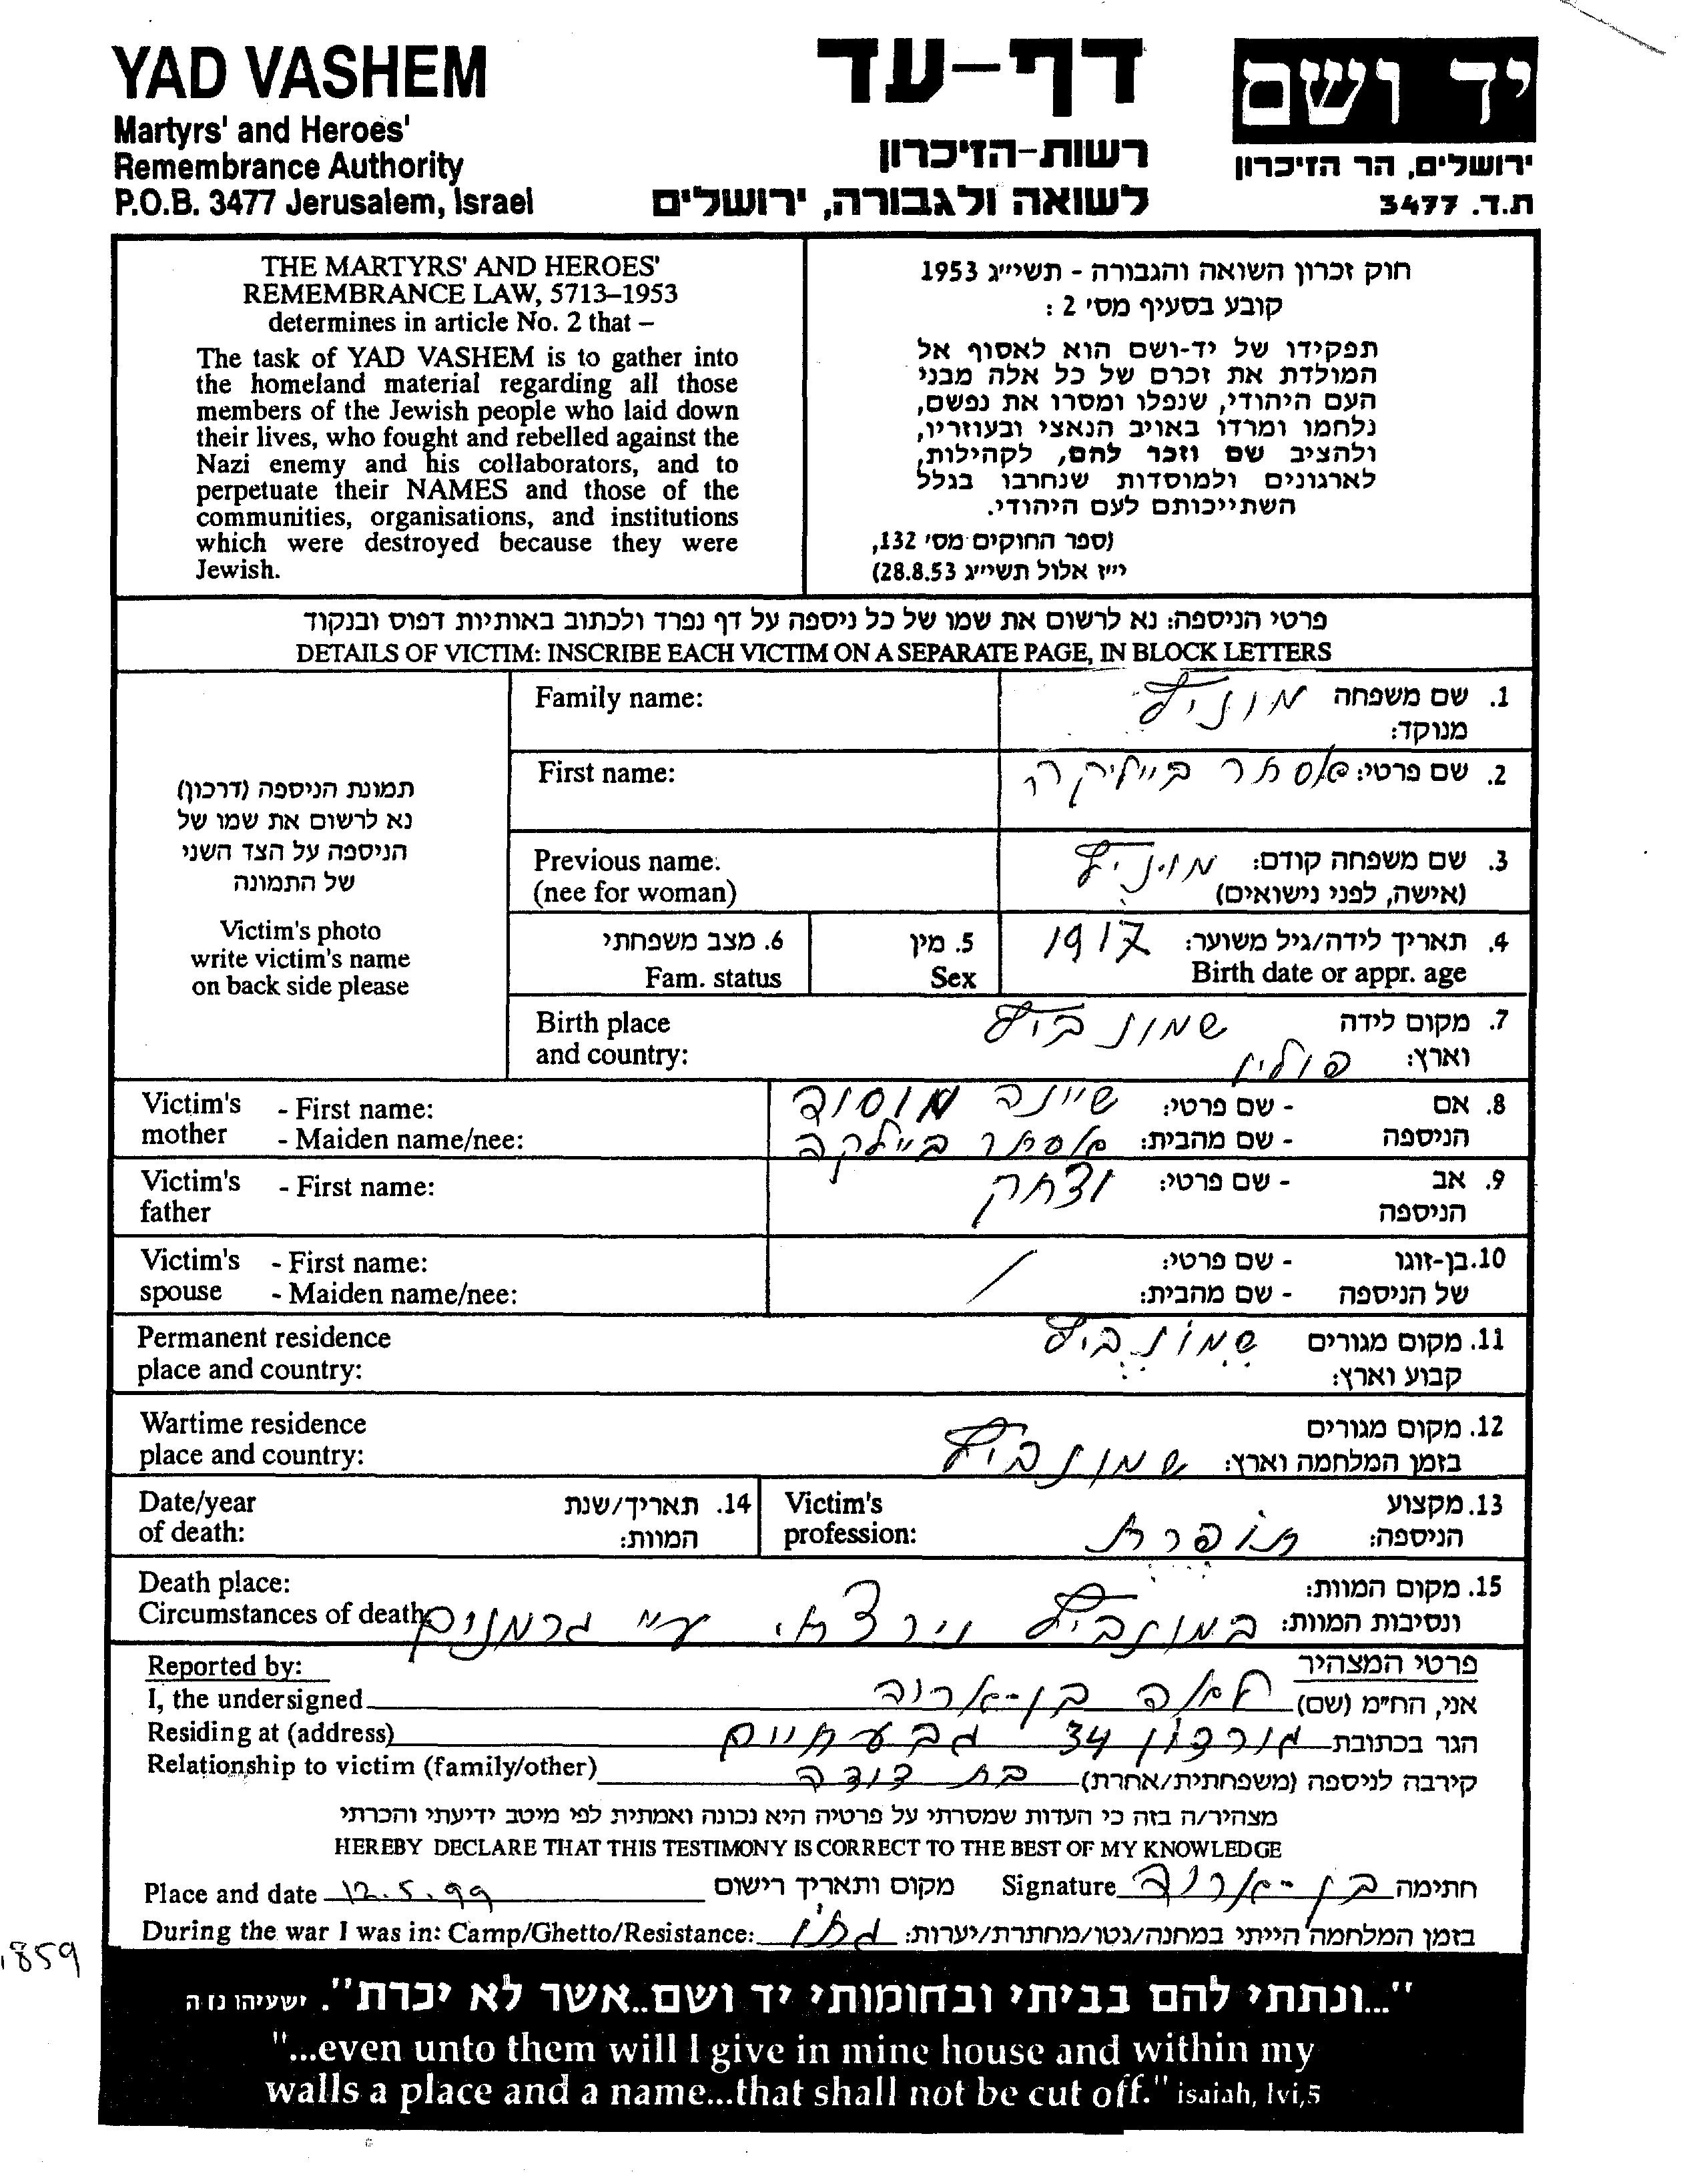 YAD VASHEM
Martyrs' and Heroes'
Remembrance Authority
P.O.B. 3477 Jerusalem, Israel
דף-עד
רשות-הזיכרון
לשואה ולגבורה, ירושלים
יד ושם
ירושלים, הר הזיכרון
ת.ד. 3477
THE MARTYRS' AND HEROES'
REMEMBRANCE LAW, 5713–1953
determines in article No. 2 that –
The task of YAD VASHEM is to gather into
the homeland material regarding all those
members of the Jewish people who laid down
their lives, who fought and rebelled against the
Nazi enemy and his collaborators, and to
perpetuate their NAMES and those of the
communities, organisations, and institutions
which were destroyed because they were
Jewish.
חוק זכרון השואה והגבורה - תשי״ג 1953
קובע בסעיף מס׳ 2 :
תפקידו של יד-ושם הוא לאסוף אל
המולדת את זכרם של כל אלה מבני
העם היהודי, שנפלו ומסרו את נפשם,
נלחמו ומרדו באויב הנאצי ובעוזריו,
ולהציב שם וזכר להם, לקהילות,
לארגונים ולמוסדות שנחרבו בגלל
השתייכותם לעם היהודי.
(ספר החוקים מס׳ 132,
י״ז אלול תשי״ג 28.8.53)
פרטי הניספה: נא לרשום את שמו של כל ניספה על דף נפרד ולכתוב באותיות דפוס ובנקוד
DETAILS OF VICTIM: INSCRIBE EACH VICTIM ON A SEPARATE PAGE, IN BLOCK LETTERS
תמונת הניספה (דרכון)
נא לרשום את שמו של
הניספה על הצד השני
של התמונה
Victim's photo
write victim's name
on back side please
Family name:
1. שם משפחה
מנוקד:
First name:
2. שם פרטי: אסתר ביילקה
Previous name.
(nee for woman)
3. שם משפחה קודם:
(אישה, לפני נישואים)
4. תאריך לידה/גיל משוער: 1917
Birth date or appr. age
5. מין
Sex
6. מצב משפחתי
Fam. status
Birth place
and country:
7. מקום לידה
וארץ: פולין
Victim's mother
- First name:
- Maiden name/nee:
8. אם הניספה
- שם פרטי: שיינה
- שם מהבית: אסתר ביילקה
Victim's father
- First name:
9. אב הניספה
- שם פרטי: יצחק
Victim's spouse
- First name:
- Maiden name/nee:
10. בן-זוגו של הניספה
- שם פרטי:
- שם מהבית:
Permanent residence
place and country:
11. מקום מגורים
קבוע וארץ:
Wartime residence
place and country:
12. מקום מגורים
בזמן המלחמה וארץ:
Date/year
of death:
14. תאריך/שנת
המוות:
Victim's
profession:
13. מקצוע
הניספה: תופרת
Death place:
Circumstances of death
15. מקום המוות:
ונסיבות המוות: ע״י גרמנים
Reported by:
פרטי המצהיר
I, the undersigned
אני, הח״מ (שם) לאה בן-אריה
Residing at (address)
הגר בכתובת גורדון 34 גבעתיים
Relationship to victim (family/other)
קירבה לניספה (משפחתית/אחרת) בת דודה
מצהיר/ה בזה כי העדות שמסרתי על פרטיה היא נכונה ואמתית לפי מיטב ידיעתי והכרתי
HEREBY DECLARE THAT THIS TESTIMONY IS CORRECT TO THE BEST OF MY KNOWLEDGE
Place and date 12.5.99 מקום ותאריך רישום
Signature בן-אריה חתימה
During the war I was in: Camp/Ghetto/Resistance:
בזמן המלחמה הייתי במחנה/גטו/מחתרת/יערות: גטו
1859
"...ונתתי להם בביתי ובחומותי יד ושם..אשר לא יכרת". ישעיהו נו ה
"...even unto them will I give in mine house and within my
walls a place and a name...that shall not be cut off." isaiah, lvi,5